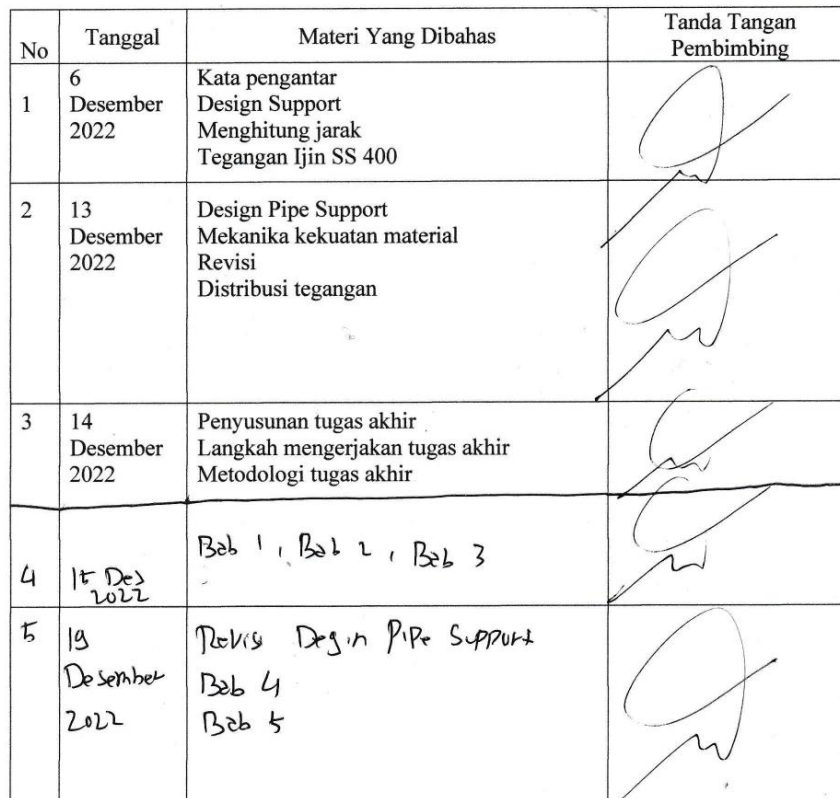 No Tanggal Materi Yang Dibahas Tanda Tangan
Pembimbing
1 6
Desember
2022
Kata pengantar
Design Support
Menghitung jarak
Tegangan Ijin SS 400
2 13
Desember
2022
Design Pipe Support
Mekanika kekuatan material
Revisi
Distribusi tegangan
3 14
Desember
2022
Penyusunan tugas akhir
Langkah mengerjakan tugas akhir
Metodologi tugas akhir
4 15 Des
2022
Bab 1, Bab 2, Bab 3
5 19
Desember
2022
Revisi Degin Pipe Support
Bab 4
Bab 5